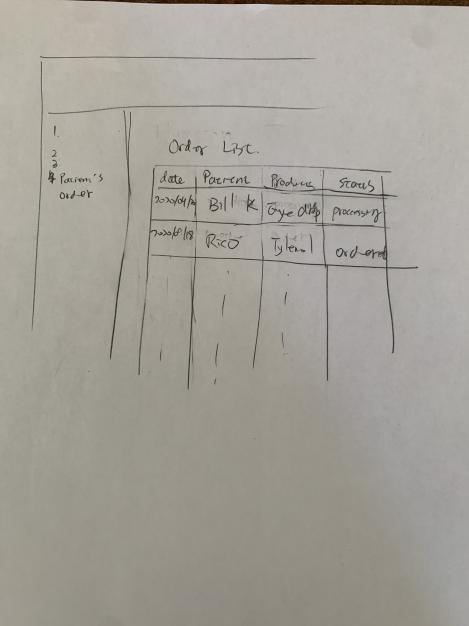 1.
2
3
4 Patient's
order
Order List.
date Patient Product Status
Bill K Eye drip processing
Rico Tylenol ordered